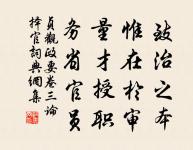 致治之本
惟在於审
量才授职
务省官员
貞觀政要卷三論
擇官詞典網集